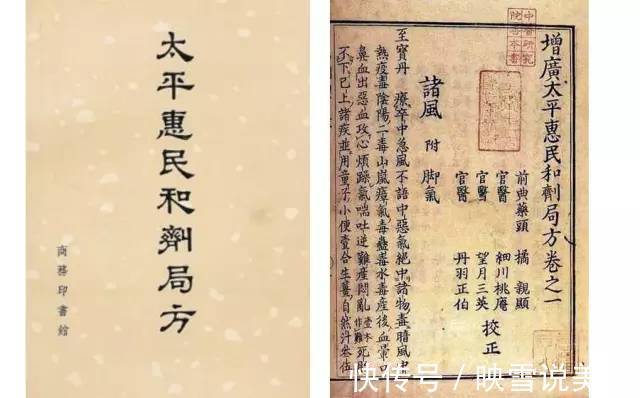 太平惠民和劑局方
商務印書館
增廣太平惠民和劑局方卷之一
前典藥頭 橘 親顯
官醫 細川桃庵
官醫 望月三英 校正
官醫 丹羽正伯
諸風 附 脚氣
至寶丹 療卒中急風不語中惡氣絕中諸物毒暗風中
熱疫毒陰陽二毒山嵐瘴氣毒蠱毒水毒產後血暈
鼻血出惡血攻心煩躁氣喘吐逆難產悶亂死胎
不下已上諸疾並用童子小便壹合生薑自然汁叁伍
快传号 / 映雪说美